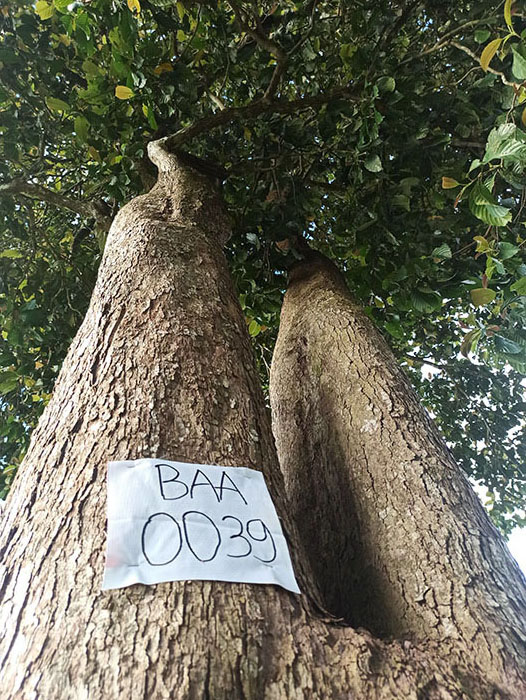 BAA
0039